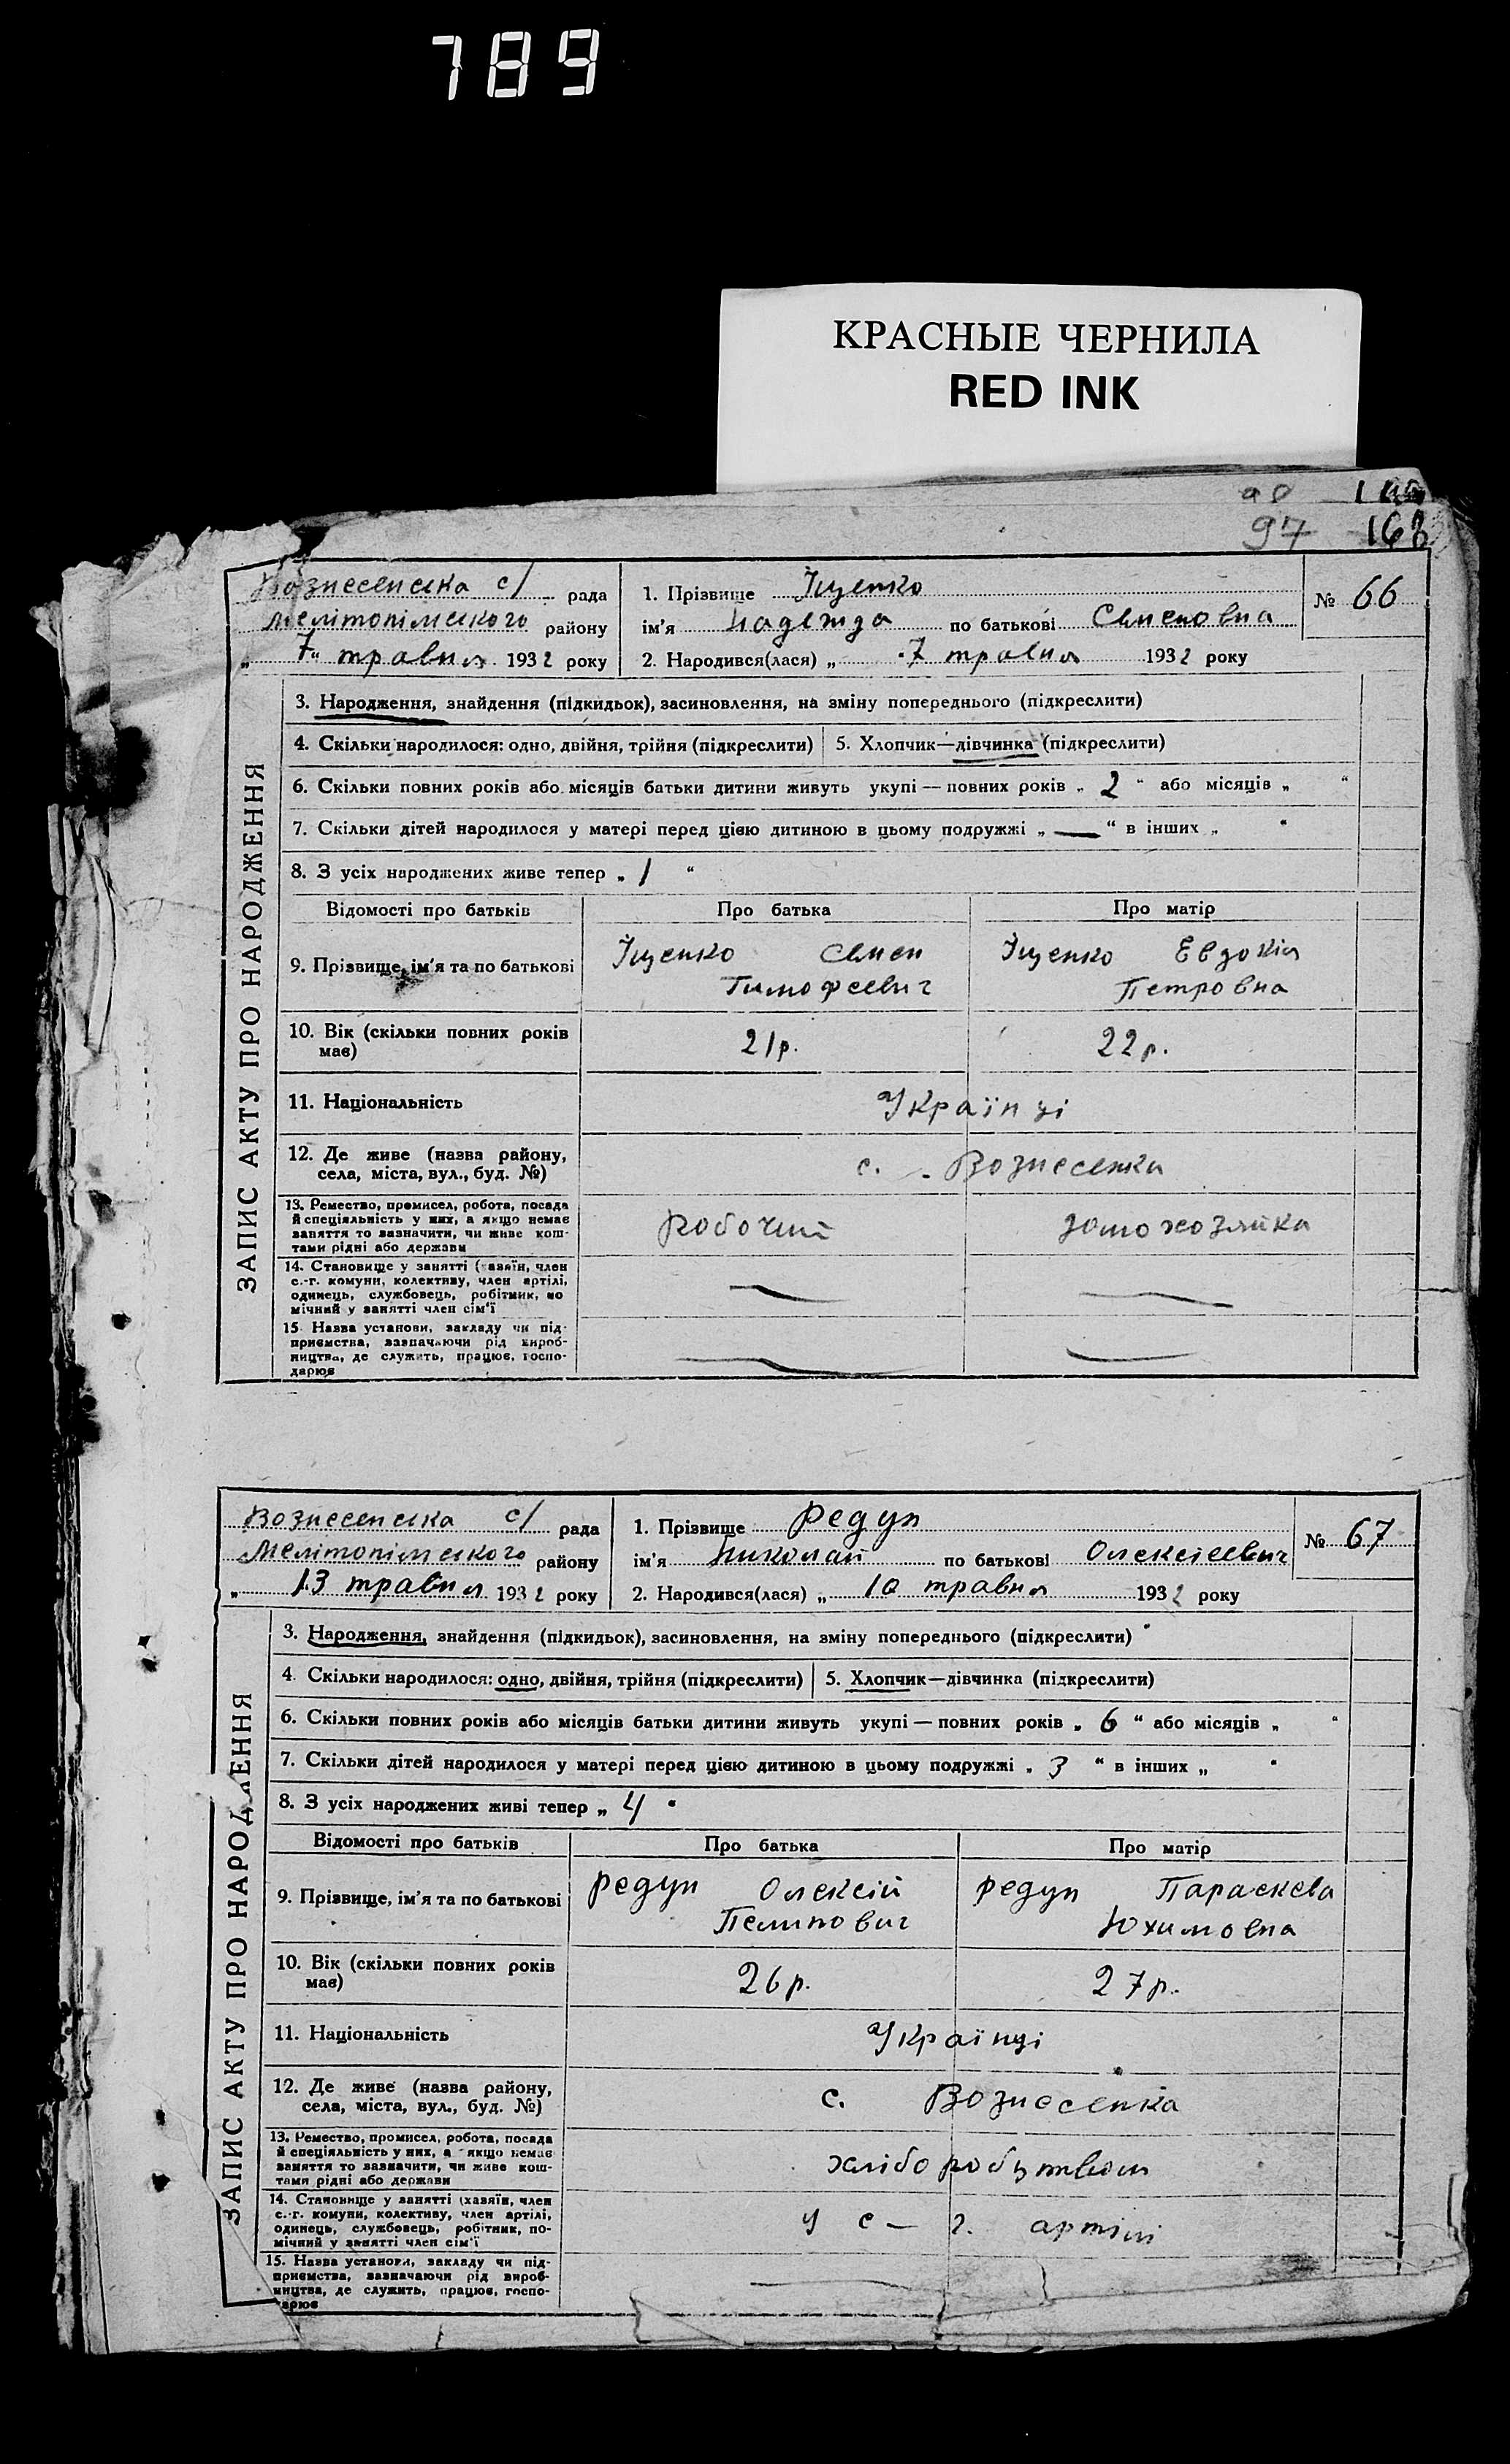 789
КРАСНЫЕ ЧЕРНИЛА
RED INK
97 168
Вознесенська с/ рада
Мелітопільського району
„ 7 “ травня 1932 року
1. Прізвище Іщенко
ім'я Надежда по батькові Семеновна
2. Народився(лася) „ 7 травня 1932 року
№ 66
ЗАПИС АКТУ ПРО НАРОДЖЕННЯ
3. Народження, знайдення (підкидьок), засиновлення, на зміну попереднього (підкреслити)
4. Скільки народилося: одно, двійня, трійня (підкреслити) 5. Хлопчик—дівчинка (підкреслити)
6. Скільки повних років або місяців батьки дитини живуть укупі — повних років „ 2 “ або місяців „ “
7. Скільки дітей народилося у матері перед цією дитиною в цьому подружжі „ — “ в інших „ “
8. З усіх народжених живе тепер „ 1 “
Відомості про батьків Про батька Про матір
9. Прізвище, ім'я та по батькові
Іщенко Семен
Тимофеевич
Іщенко Евдокія
Петровна
10. Вік (скільки повних років
має)
21р. 22р.
11. Національність Українці
12. Де живе (назва району,
села, міста, вул., буд. №)
с. Вознесенка
13. Ремество, промисел, робота, посада
й спеціяльність у них, а якщо немає
заняття то зазначити, чи живе кош-
тами рідні або держави
робочий домохозяйка
14. Становище у занятті (хазяїн, член
с.-г. комуни, колективу, член артілі,
одинець, службовець, робітник, по
мічний у занятті член сім'ї
15. Назва установи, закладу чи під-
приємства, зазначаючи рід вироб-
ництва, де служить, працює, госпо-
дарює
Вознесенська с/ рада
Мелітопільського району
„ 13 травня 1932 року
1. Прізвище Редун
ім'я Николай по батькові Олексіеевич
2. Народився(лася) „ 10 травня 1932 року
№ 67
ЗАПИС АКТУ ПРО НАРОДЖЕННЯ
3. Народження, знайдення (підкидьок), засиновлення, на зміну попереднього (підкреслити)
4. Скільки народилося: одно, двійня, трійня (підкреслити) 5. Хлопчик—дівчинка (підкреслити)
6. Скільки повних років або місяців батьки дитини живуть укупі — повних років „ 6 “ або місяців „ “
7. Скільки дітей народилося у матері перед цією дитиною в цьому подружжі „ 3 “ в інших „
8. З усіх народжених живі тепер „ 4
Відомості про батьків Про батька Про матір
9. Прізвище, ім'я та по батькові
Редун Олексій
Редун Параскева
Юхимовна
10. Вік (скільки повних років
має)
26р. 27р.
11. Національність Українці
12. Де живе (назва району,
села, міста, вул., буд. №)
с. Вознесенка
13. Ремество, промисел, робота, посада
й спеціяльність у них, а якщо немає
заняття то зазначити, чи живе кош-
тами рідні або держави
14. Становище у занятті (хазяїн, член
с.-г. комуни, колективу, член артілі,
одинець, службовець, робітник, по-
мічний у занятті член сім'ї
у с — г. артілі
15. Назва установи, закладу чи під-
приємства, зазначаючи рід вироб-
ництва, де служить, працює, госпо-
дарює